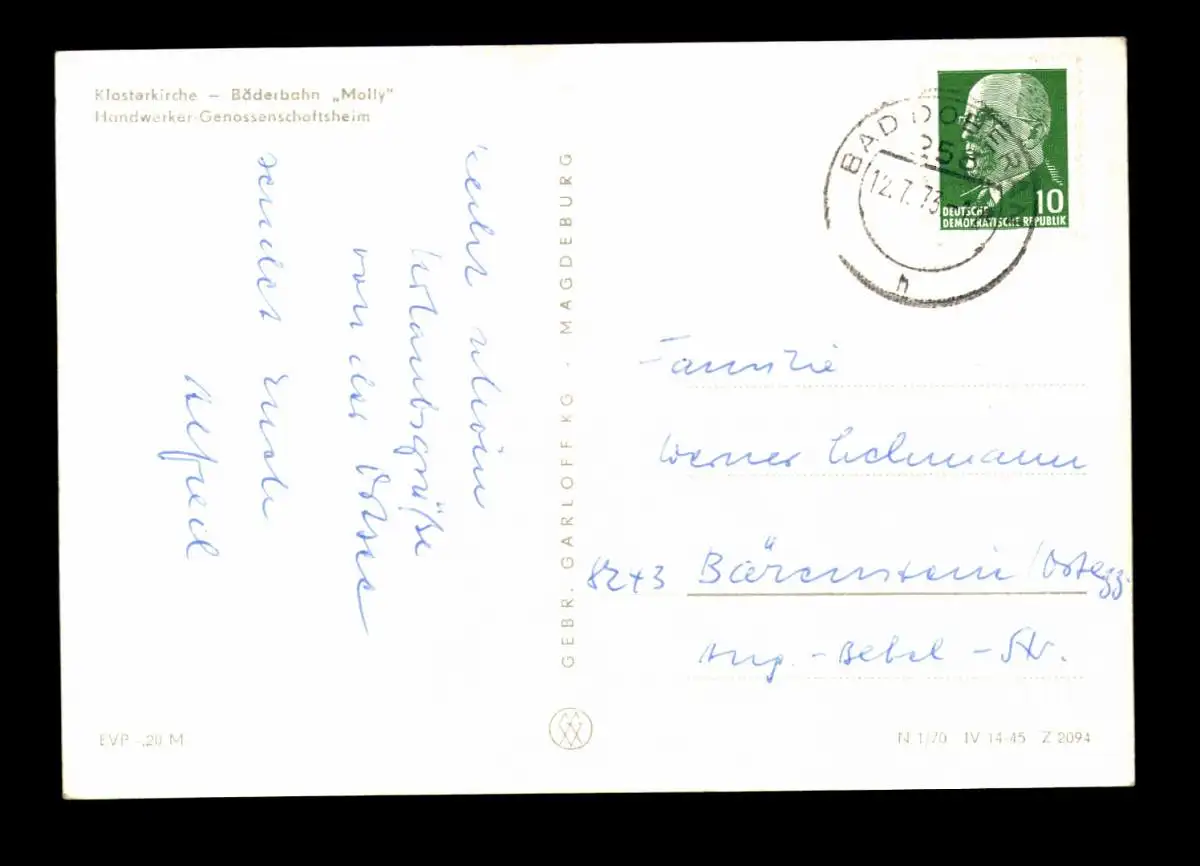 Klosterkirche – Bäderbahn „Molly"
Handwerker-Genossenschaftsheim
Urlaubsgrüße
von der Ostsee
sendet Euch
Alfred
EVP -,20 M
GEBR. GARLOFF KG · MAGDEBURG
BAD DOBERAN
258
12.7.73
h
10
DEUTSCHE
DEMOKRATISCHE REPUBLIK
Familie
Werner Lehmann
8243 Bärenstein/Osterzg.
Aug.-Bebel-Str.
N 1/70 IV 14-45 Z 2094